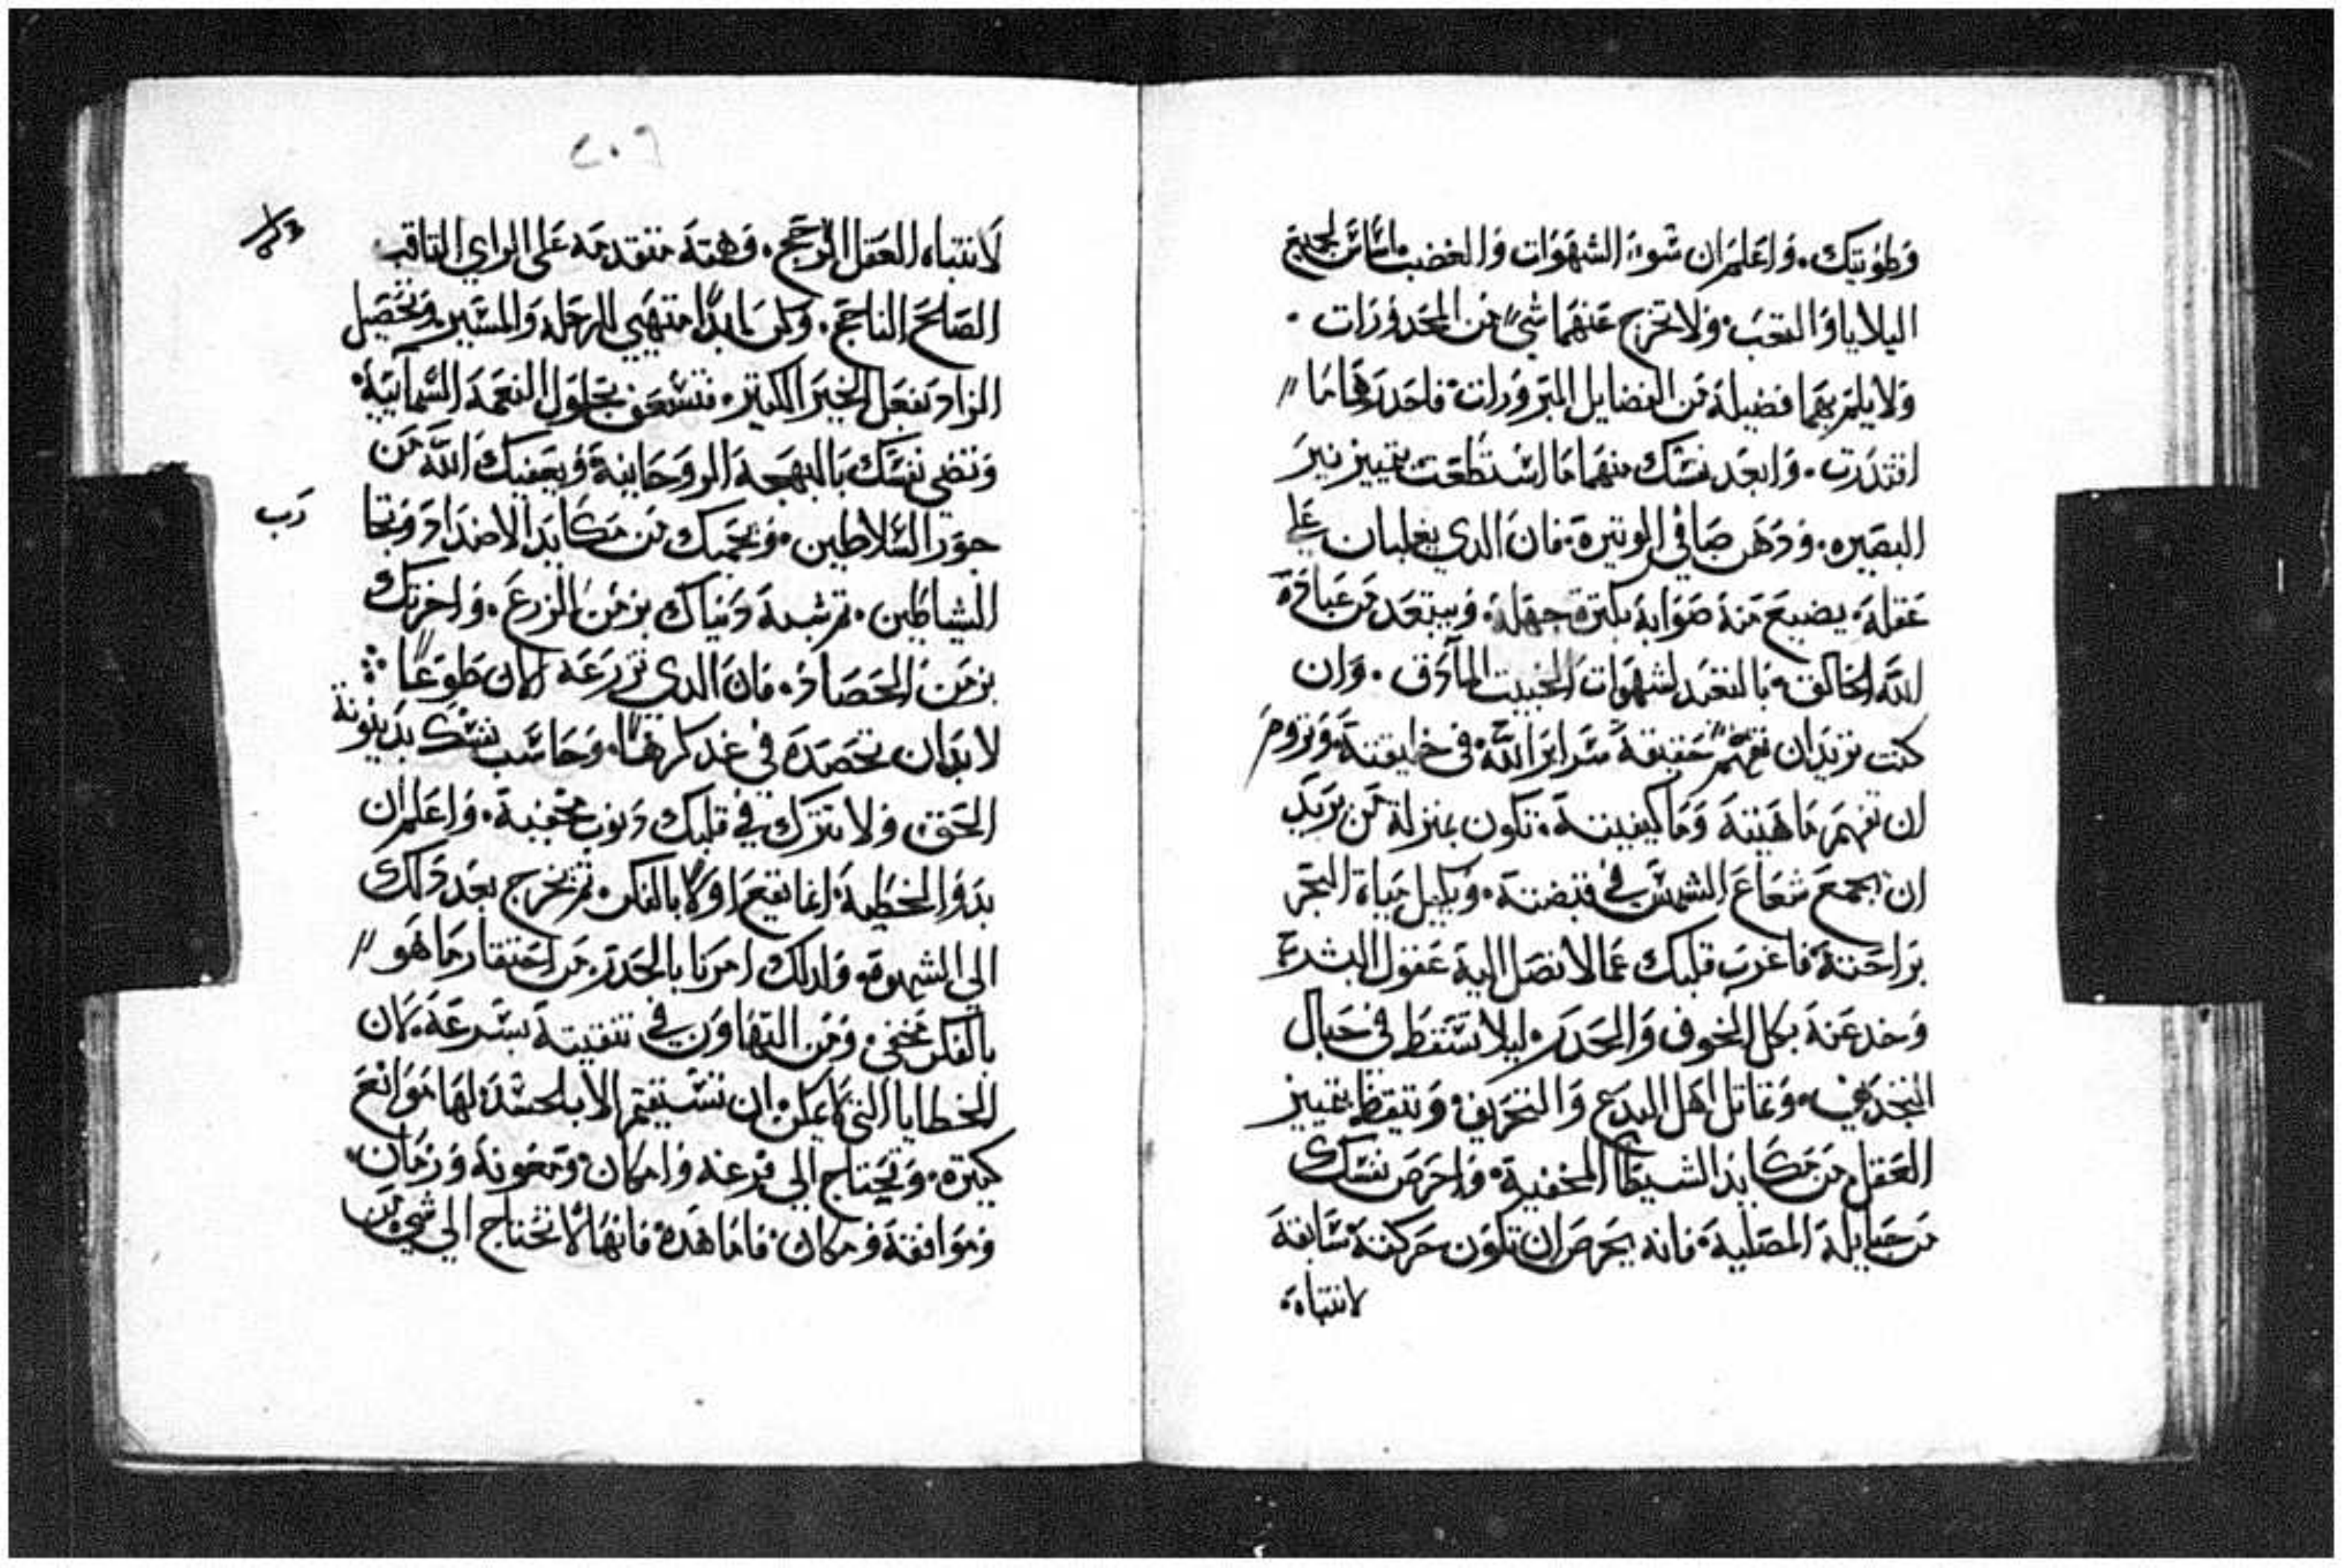 وطويتك. واعلم ان سوء الشهوات والغضب اساس لجميع
البلايا والتعب. ولا تخرج عنهما شيء من المحدورات.
ولا يلم بهما فضيلة من الفضايل المبرورات. فاحدرهما ما
اقتدرت. وابعد نفسك منهما ما استطعت بتمييز نير
البصيره. ودهن صافي الوتيرة. فان الدي يغلبان علي
عقله. يضيع منه صوابه بكترة جهله. ويبتعد من عبادة
الله الخالق. بالتعبد لشهوات الخبيت المادق. وان
كنت تريد ان تفهم حقيقة سراير الله في خليقته. وتروم
ان تفهم ماهيته وما كيفيته. تكون بمنزلة من يريد
ان يجمع شعاع الشمس في قبضته. ويكيل مياة البحر
براحته. فاغرب قلبك عما لا تصل اليه عقول البشر.
وخد عنه بكل الخوف والحدر. ليلا تسقط في حبال
التجديف. وتماتل اهل البدع والتحريف. وتيقظ بتمييز
العقل من مكايد الشيطان المخفية. واحرص نفسك
من حبايله المصلية. فانه يحرص ان تكون حركته سابقة
لانتباه.
٢٠٩
لانتباه العقل الرجح. وهته متقدمه علي الراي التاقب
الصلح الناجح. وكن ابدا منتهي للرحله والمسير. وتحصيل
الزاد بفعل الخير الكتير. فتسعف بحلول النعمة السمآيية.
وتضي نفسك بالبهجة الروحانية. ويعفيك الله من
جور السلاطين. ويحميك من مكايد الاضداد وتجا
رب
الشياطين. تم شبه دنياك بزمن الزرع. واخرتك
بزمن الحصاد. فان الدي تزرعه الان طوعا
لا بد ان تحصده في غد كرها. وحاسب نفسك بدينونة
الحق. ولا تترك في قلبك دنوب مخفية. واعلم ان
بدو الخطية انما تقع اولا بالفكر. تم تخرج بعد دلك
الي الشهوة. ولدلك امرنا بالحدر. من احتقار ما هو
بالفكر مخفي. ومن التهاون في تنقيته بسرعة. لان
الخطايا التي لا يمكن ان تستقيم الا بالجسد. لها موانع
كتيرة. وتحتاج الي فرغه وامكان. ومعونه وزمان.
وموافقة ومكان. فاما هده فانها لا تحتاج الي شي من